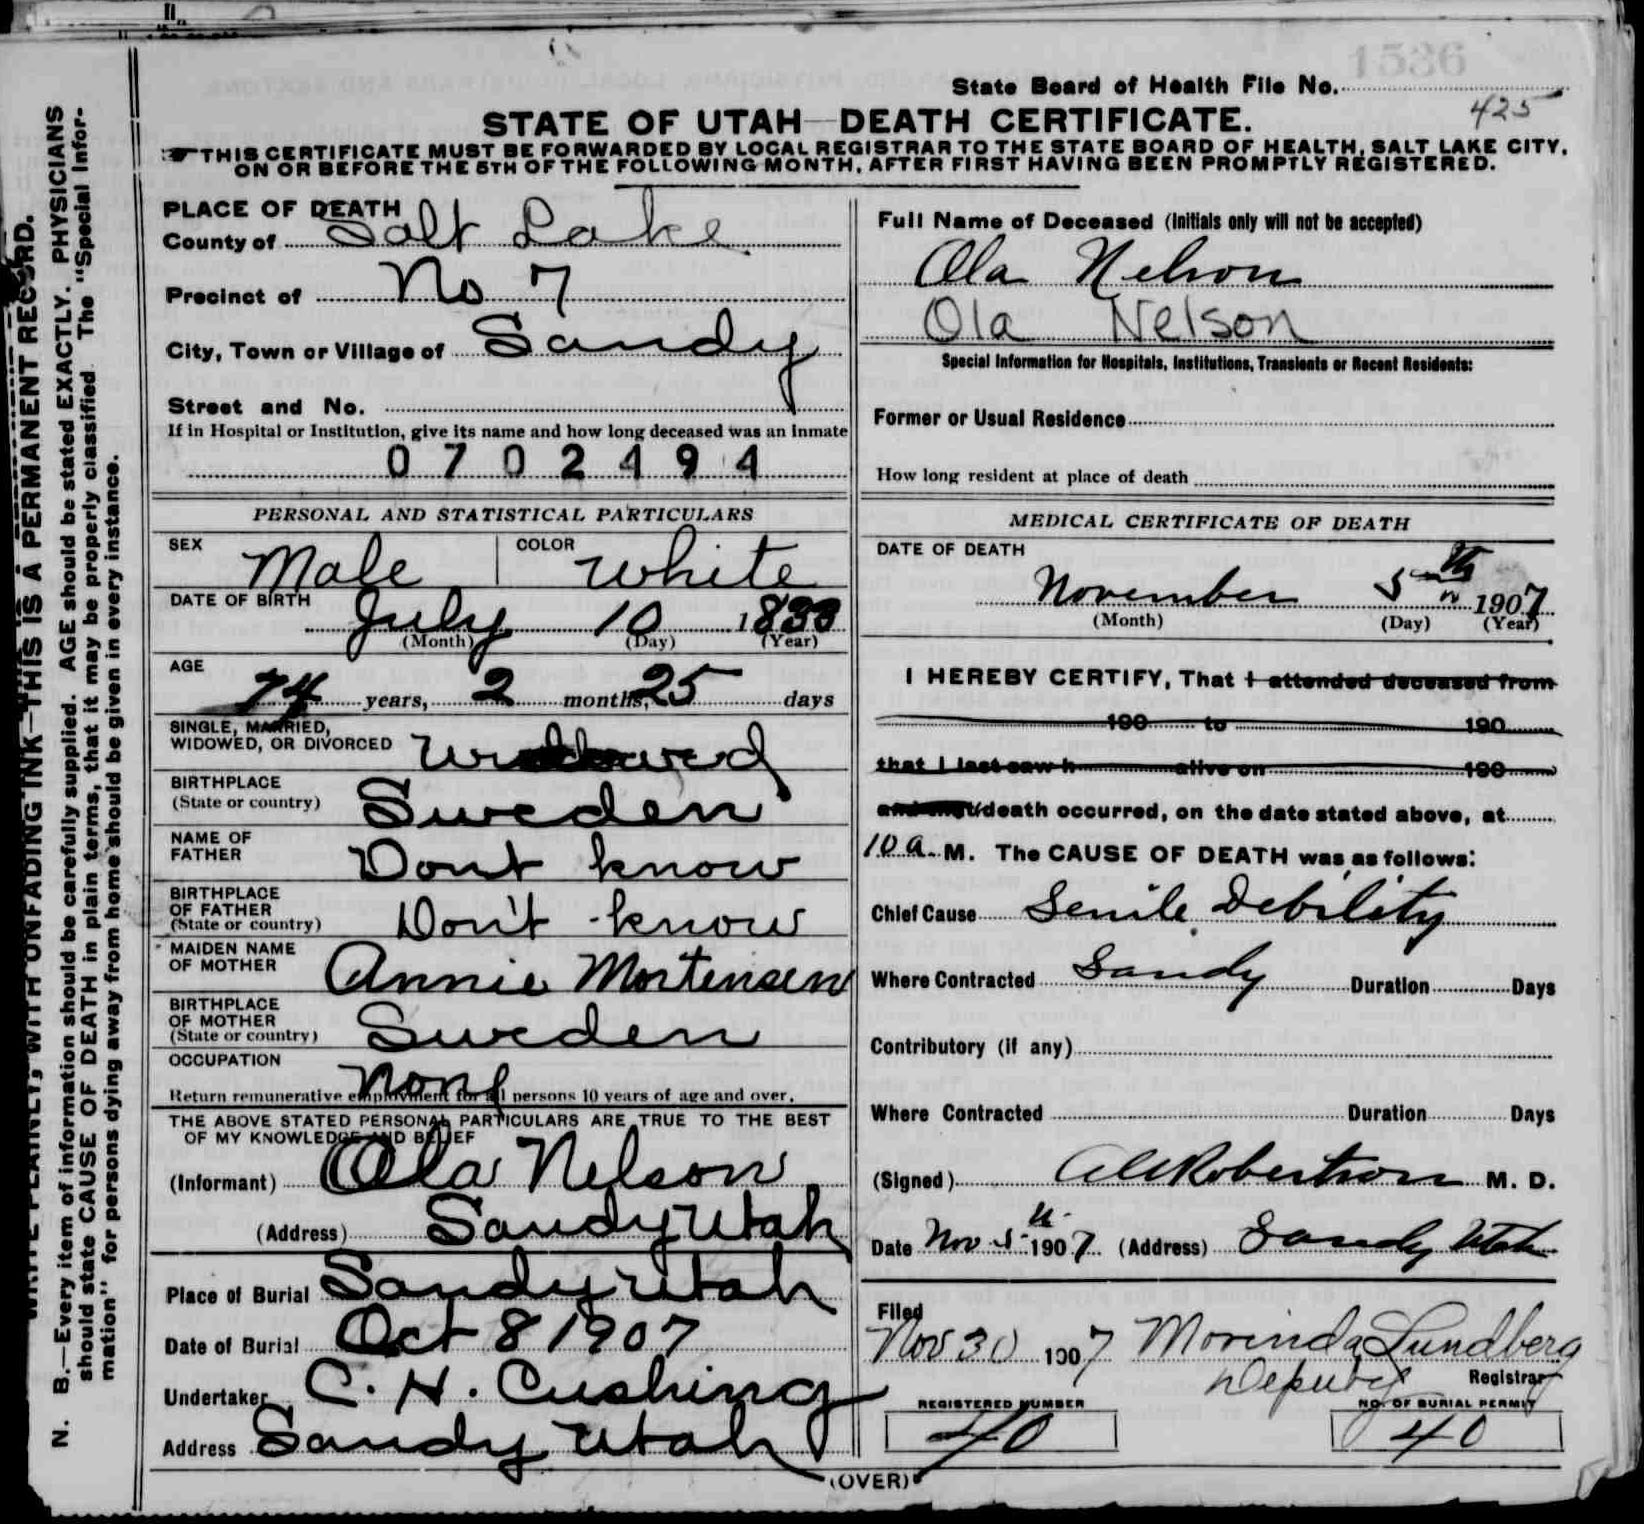 1536
State Board of Health File No.
425
STATE OF UTAH—DEATH CERTIFICATE.
THIS CERTIFICATE MUST BE FORWARDED BY LOCAL REGISTRAR TO THE STATE BOARD OF HEALTH, SALT LAKE CITY,
ON OR BEFORE THE 5TH OF THE FOLLOWING MONTH, AFTER FIRST HAVING BEEN PROMPTLY REGISTERED.
WRITE PLAINLY, WITH UNFADING INK—THIS IS A PERMANENT RECORD.
N. B.—Every item of information should be carefully supplied. AGE should be stated EXACTLY. PHYSICIANS
should state CAUSE OF DEATH in plain terms, that it may be properly classified. The "Special Infor-
mation" for persons dying away from home should be given in every instance.
PLACE OF DEATH
County of Salt Lake
Precinct of No 7
City, Town or Village of Sandy
Street and No.
If in Hospital or Institution, give its name and how long deceased was an inmate
0702494
PERSONAL AND STATISTICAL PARTICULARS
SEX Male COLOR White
DATE OF BIRTH July 10 1833
(Month) (Day) (Year)
AGE 74 years, 2 months, 25 days
SINGLE, MARRIED,
WIDOWED, OR DIVORCED Widowed
BIRTHPLACE
(State or country) Sweden
NAME OF
FATHER Dont know
BIRTHPLACE
OF FATHER
(State or country) Don't know
MAIDEN NAME
OF MOTHER Annie Mortensen
BIRTHPLACE
OF MOTHER
(State or country) Sweden
OCCUPATION
None
Return remunerative employment for all persons 10 years of age and over.
THE ABOVE STATED PERSONAL PARTICULARS ARE TRUE TO THE BEST
OF MY KNOWLEDGE AND BELIEF
(Informant) Ola Nelson
(Address) Sandy Utah
Place of Burial Sandy Utah
Date of Burial Oct 8 1907
Undertaker C. H. Cushing
Address Sandy Utah
Full Name of Deceased (Initials only will not be accepted)
Ola Nelson
Ola Nelson
Special Information for Hospitals, Institutions, Transients or Recent Residents:
Former or Usual Residence
How long resident at place of death
MEDICAL CERTIFICATE OF DEATH
DATE OF DEATH
November 5th 1907
(Month) (Day) (Year)
I HEREBY CERTIFY, That I attended deceased from
190 to 190
that I last saw h alive on 190
and that death occurred, on the date stated above, at
10 a M. The CAUSE OF DEATH was as follows:
Chief Cause Senile Debility
Where Contracted Sandy Duration Days
Contributory (if any)
Where Contracted Duration Days
(Signed) Robertson M. D.
Date Nov 5th 1907 (Address) Sandy Utah
Filed
Nov 30 1907 Morinda Lundberg
Deputy Registrar
REGISTERED NUMBER NO. OF BURIAL PERMIT
40 40
(OVER)